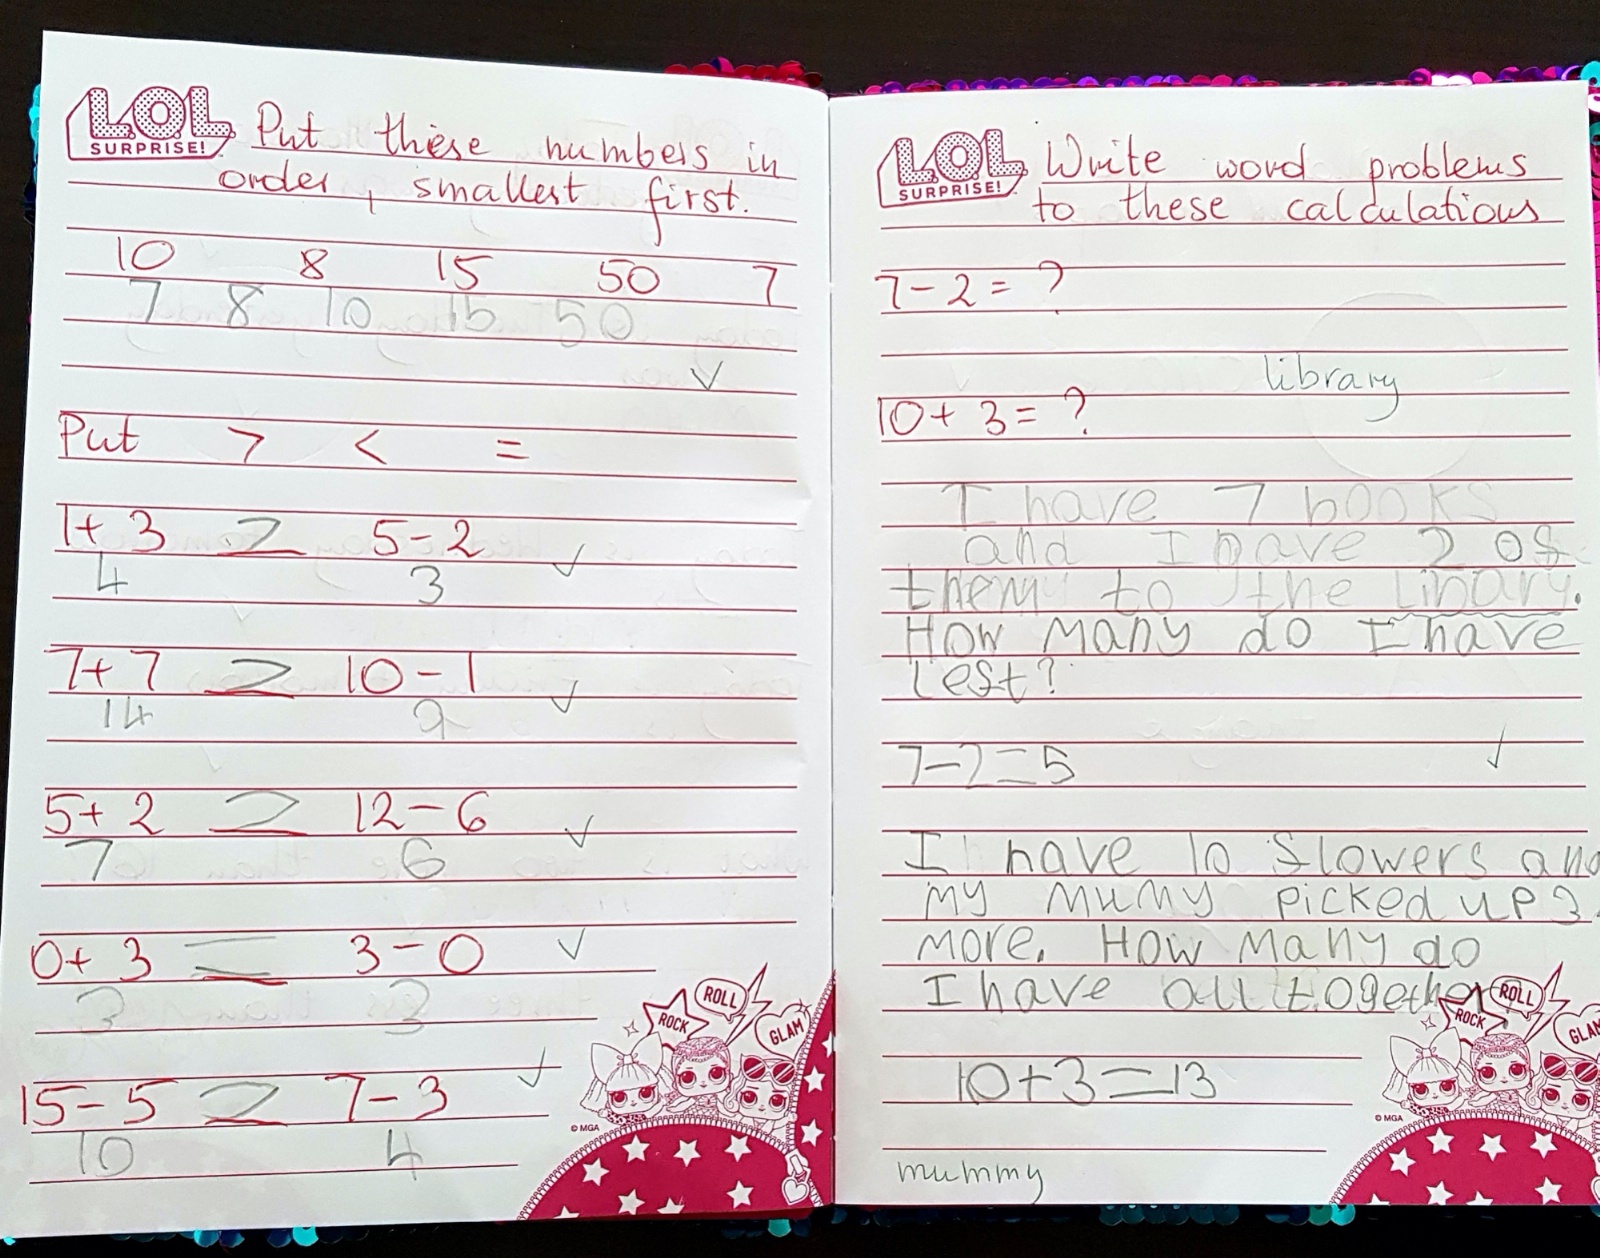 LOL SURPRISE!
Put these numbers in
order, smallest first.
10 8 15 50 7
7 8 10 15 50
✓
Put > < =
1+3 > 5-2 ✓
4 3
7+7 > 10-1 ✓
14 9
5+2 > 12-6 ✓
7 6
0+3 = 3-0 ✓
3 3
15-5 > 7-3 ✓
10 4
ROCK ROLL GLAM
© MGA
LOL SURPRISE!
Write word problems
to these calculations
7-2=?
library
10+3=?
I have 7 books
and I gave 2 of
them to the library.
How many do I have
left?
7-2=5 ✓
I have 10 flowers and
my mumy picked up 3
more. How many do
I have alltogether?
10+3=13
mummy
ROCK ROLL GLAM
© MGA